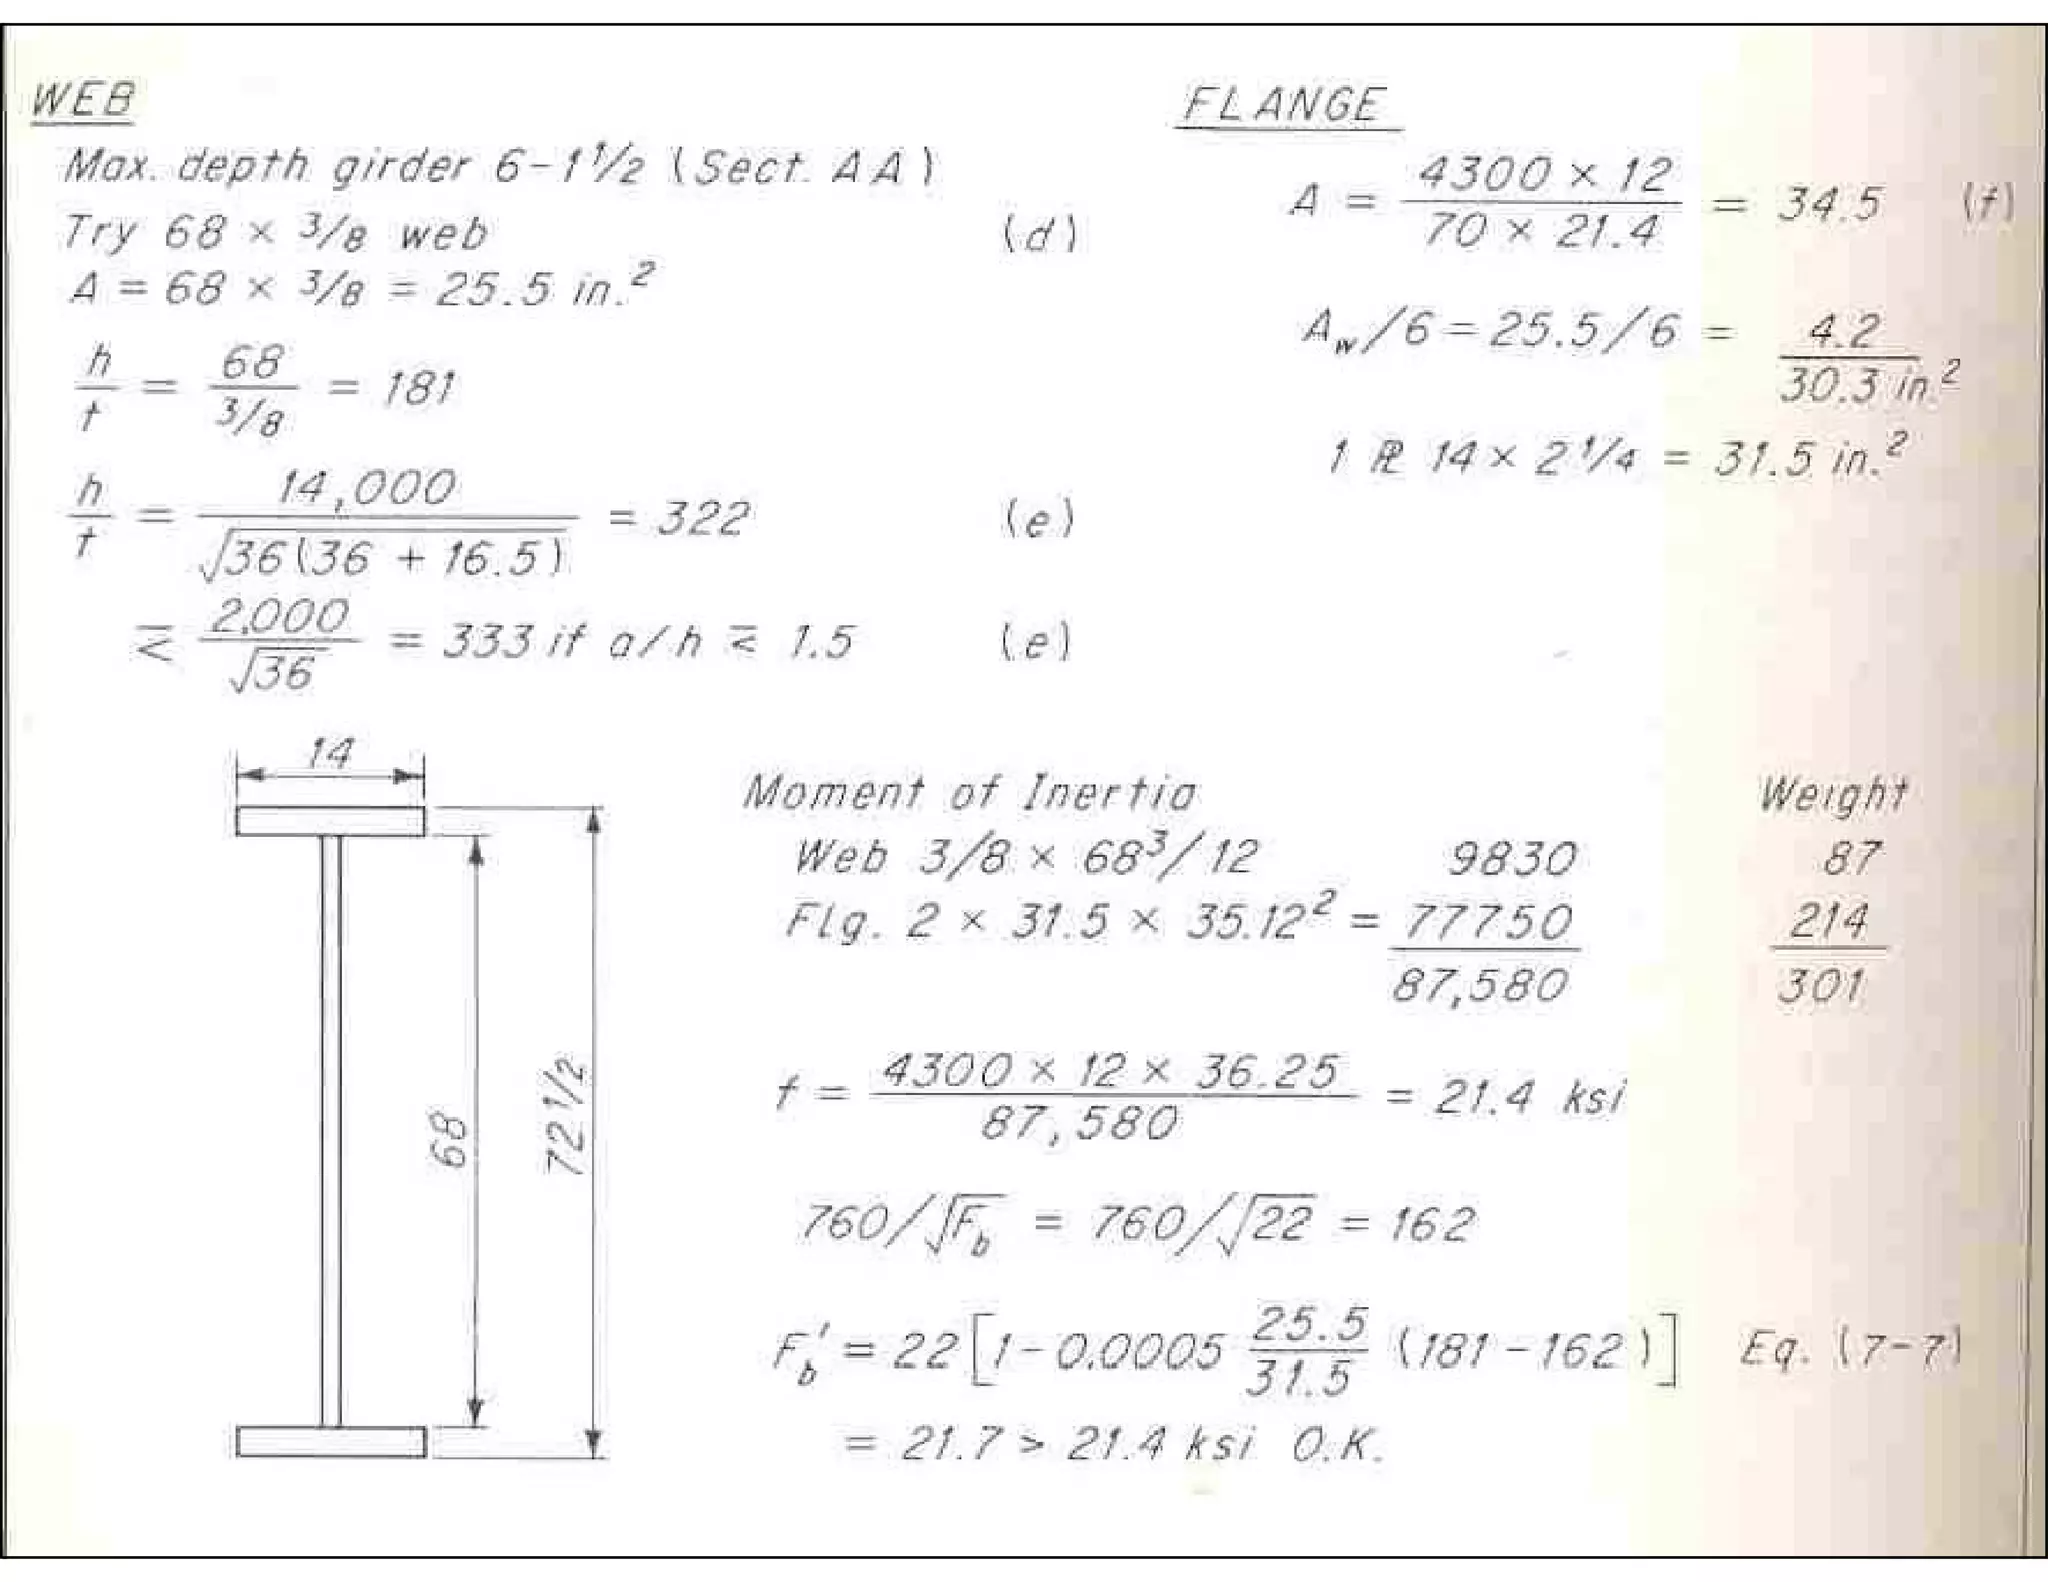 WEB
Max. depth girder 6-1 1/2 (Sect. AA)
Try 68 × 3/8 web (d)
A = 68 × 3/8 = 25.5 in.²
h/t = 68/(3/8) = 181
h/t = 14,000/√36(36 + 16.5) = 322 (e)
⋜ 2,000/√36 = 333 if a/h ⋜ 1.5 (e)
FLANGE
A = (4300 × 12)/(70 × 21.4) = 34.5 (f)
A_w/6 = 25.5/6 = 4.2
30.3 in.²
1 PL 14 × 2 1/4 = 31.5 in.²
14
68
72 1/2
Moment of Inertia Weight
Web 3/8 × 68³/12 9830 87
Flg. 2 × 31.5 × 35.12² = 77750 214
87,580 301
f = (4300 × 12 × 36.25)/87,580 = 21.4 ksi
760/√F_b = 760/√22 = 162
F_b' = 22[1 - 0.0005 25.5/31.5 (181 - 162)] Eq. (7-7)
= 21.7 > 21.4 ksi O.K.